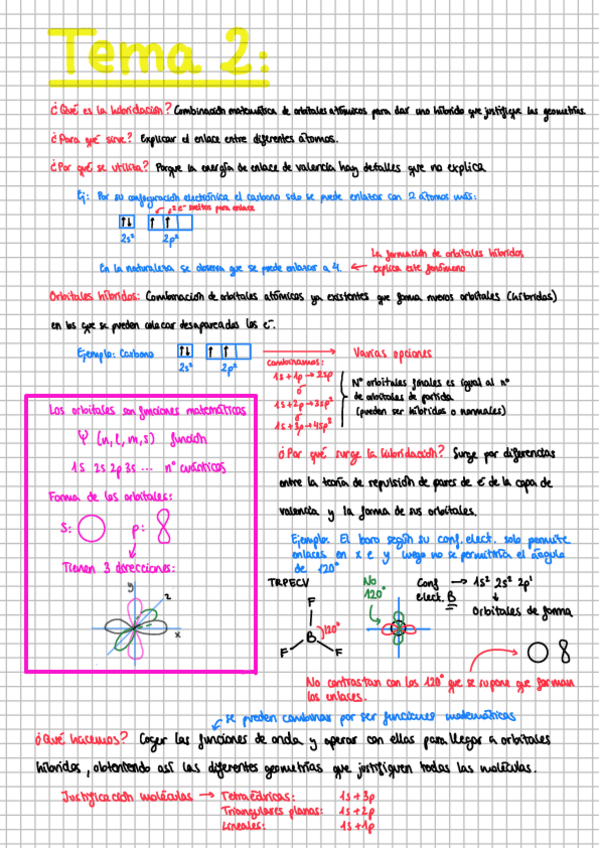 Tema 2:
¿Qué es la hibridación? Combinación matemática de orbitales atómicos para dar uno híbrido que justifique las geometrías.
¿Para qué sirve? Explicar el enlace entre diferentes átomos.
¿Por qué se utiliza? Porque la energía de enlace de valencia hay detalles que no explica
Ej: Por su configuración electrónica el carbono solo se puede enlazar con 2 átomos más:
2 e⁻ sueltos para enlace
2s² 2p²
La formación de orbitales híbridos
En la naturaleza se observa que se puede enlazar a 4. ← explica este fenómeno
Orbitales híbridos: Combinación de orbitales atómicos ya existentes que forma nuevos orbitales (híbridos)
en los que se pueden colocar desapareados los e⁻.
Ejemplo: Carbono → Varias opciones
2s² 2p²
combinamos:
1s + 1p → 2sp
o
1s + 2p → 3sp²
o
1s + 3p → 4sp³
Nº orbitales finales es igual al nº
de orbitales de partida
(pueden ser híbridos o normales)
Los orbitales son funciones matemáticas
Ψ (n, l, m, s) función
1s 2s 2p 3s ... nº cuánticos
Forma de los orbitales:
s: p:
Tienen 3 direcciones:
y
z
x
¿Por qué surge la hibridación? Surge por diferencias
entre la teoría de repulsión de pares de e⁻ de la capa de
valencia y la forma de sus orbitales.
Ejemplo: El boro según su conf. elect. solo permite
enlaces en x e y luego no se permitiría el ángulo
de 120°
TRPECV
F
B
120°
F F
No
120°
Conf → 1s² 2s² 2p¹
elect. B
Orbitales de forma
No contrastan con los 120° que se supone que forman
los enlaces.
se pueden combinar por ser funciones matemáticas
¿Qué hacemos? Coger las funciones de onda y operar con ellas para llegar a orbitales
híbridos, obteniendo así las diferentes geometrías que justifiquen todas las moléculas.
Justificación moléculas → Tetraédricas: 1s + 3p
Triangulares planas: 1s + 2p
Lineales: 1s + 1p